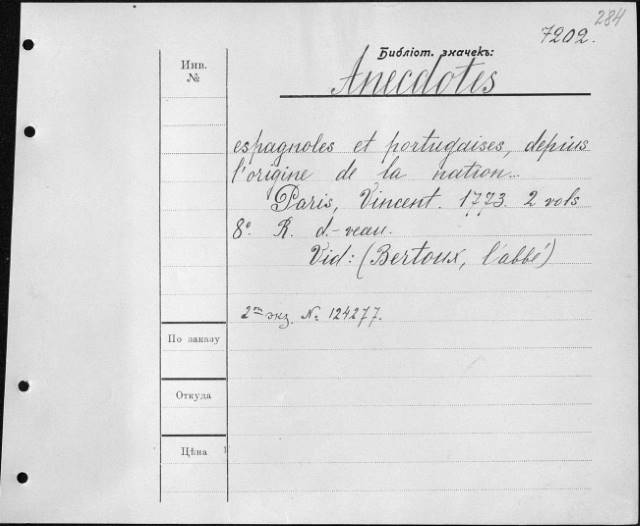 284
7202.
Библіот. значекъ:
Инв.
№
Anecdotes
espagnoles et portugaises, depius
l'origine de la nation..
Paris, Vincent. 1773. 2 vols
8º. R. d.-veau.
Vid: (Bertoux, l'abbé)
2ой экз. № 124277.
По заказу
Откуда
Цѣна